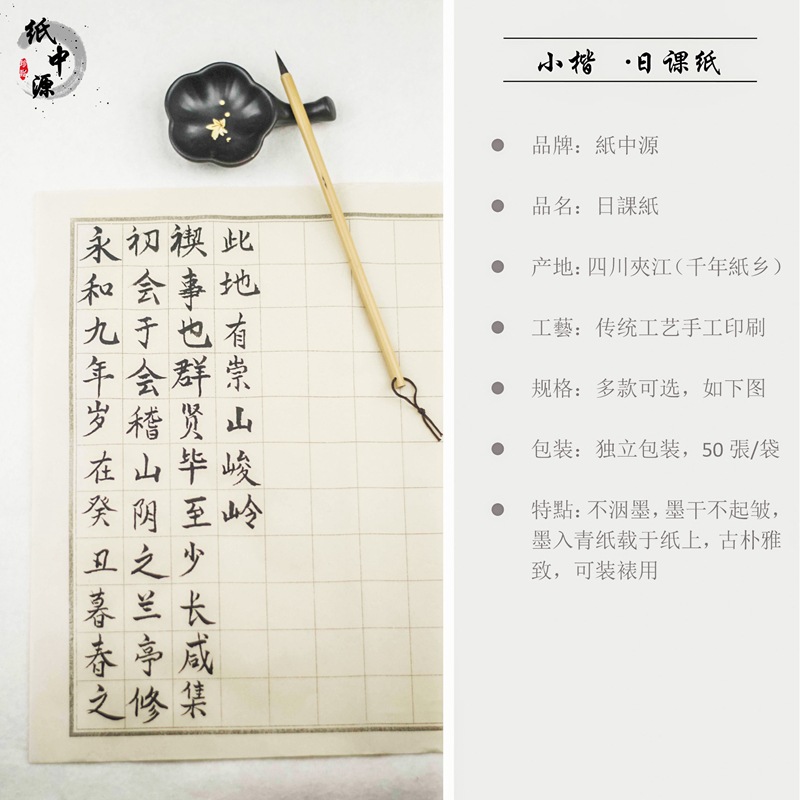 纸中源
永和九年岁在癸丑暮春之
初会于会稽山阴之兰亭修
禊事也群贤毕至少长咸集
此地有崇山峻岭
小楷·日课纸
品牌：紙中源
品名：日課紙
产地：四川夾江（千年紙乡）
工藝：传统工艺手工印刷
规格：多款可选，如下图
包装：独立包装，50 張/袋
特點：不洇墨，墨干不起皱，
墨入青纸载于纸上，古朴雅
致，可装裱用